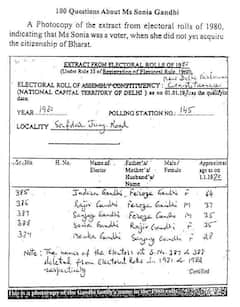 180 Questions About Ms Sonia Gandhi
A Photocopy of the extract from electoral rolls of 1980,
indicating that Ms Sonia was a voter, when she did not yet acquire
the citizenship of Bharat.
EXTRACT FROM ELECTORAL ROLLS OF 1980
(Under Rule 33 of Registration of Electoral Rule, 1960)
New Delhi Parliamentary
ELECTORAL ROLL OF ASSEMBLY CONSTITUENCY:
(NATIONAL CAPITAL TERRITORY OF DELHI) as on 01.01.1980 as the qualifying
date.
YEAR 1980 POLLING STATION NO. 145
LOCALITY Safdar Jung Road
Sr.No. H. No. Name of Elector Father's/ Mother's/ Husband's/ Name Male/ Female Approximate age as on 1.1.1980
385 Indira Gandhi Feroze Gandhi F 64
386 Rajiv Gandhi Feroze Gandhi M 37
387 Sanjay Gandhi Feroze Gandhi M 35
388 Sonia Gandhi Rajiv Gandhi F 35
Maneka Gandhi Sanjay Gandhi F 28
Note: The names of the Electors at S.No. 387 & 388
deleted from Electoral Rolls in 1981 & 1982
respectively
Certified
This is a Photocopy of the